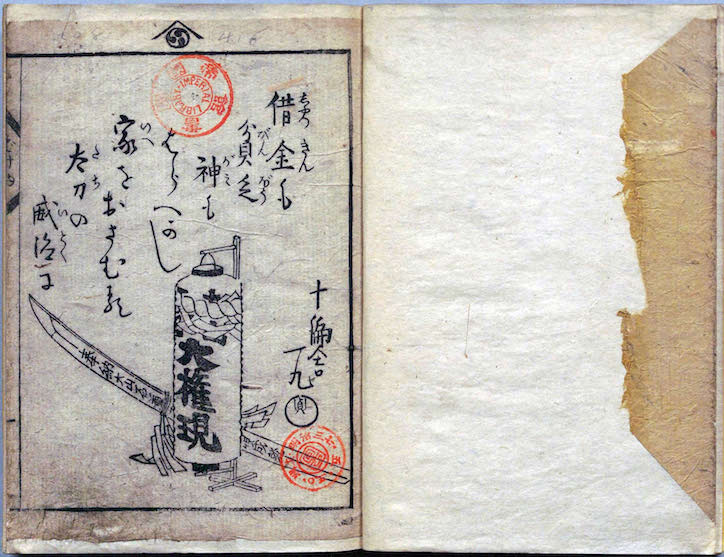 借金も
貧乏
神も
はらへかし
家をおさむる
太刀の
威徳に
十徧舎
一九
大権現
奉納大山石尊
IMPERIAL LIBRARY